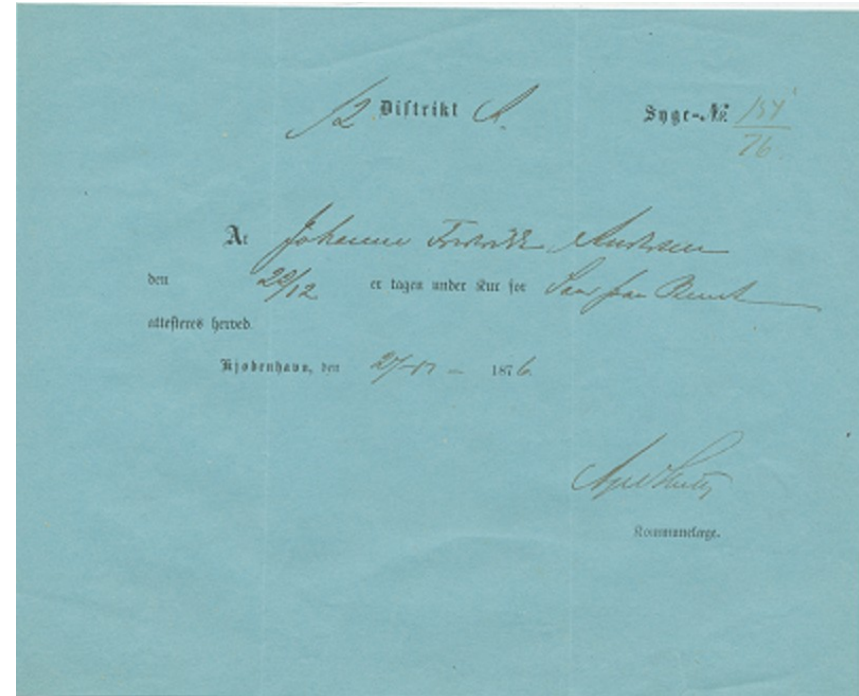 12 Distrikt A. Syge-No. 154/76.
At Johanne Andersen
den 22/12 er tagen under Kur for Saar paa
attesteres herved.
Kjøbenhavn, den 27-12 - 1876.
Kommunelæge.